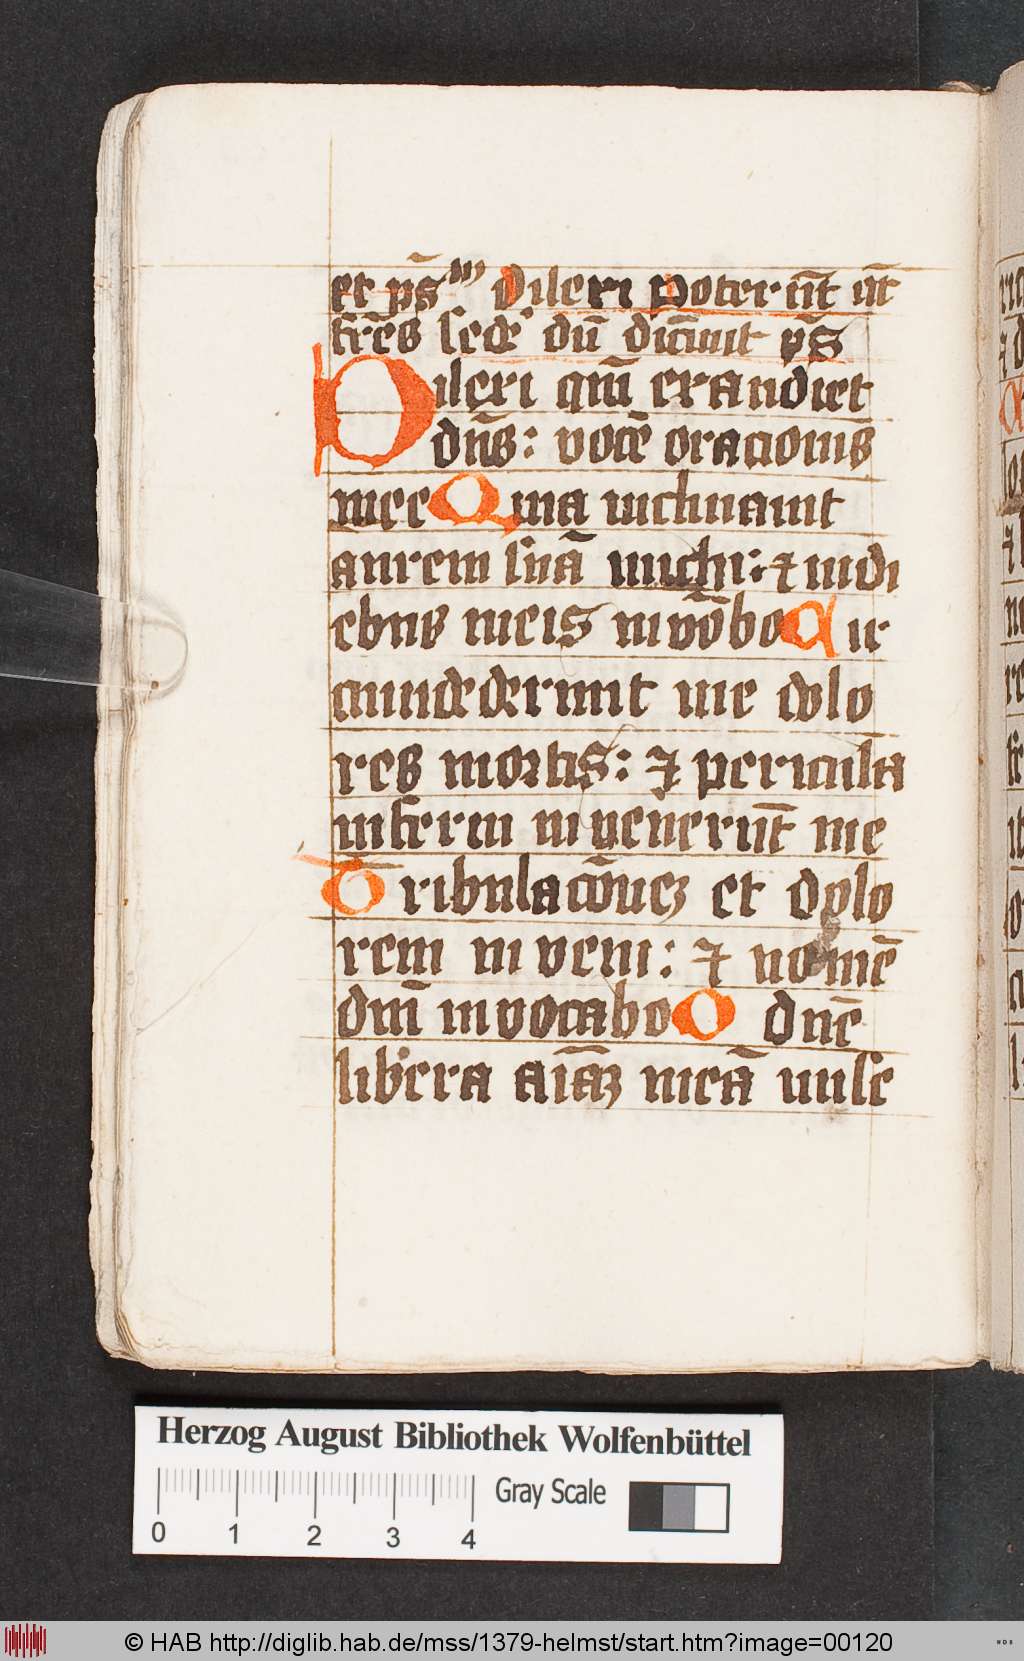 et ps̄ Dilexi Poterūt ūt
fr̄es sedē dū dicūnt ps̄
Dilexi qm̄ exaudiet
dn̄s: vocē oracionis
mee Quia inclinauit
aurem suā michi: ⁊ in di
ebus meis invōbo Cir
cumdederunt me dolo
res mortis: ⁊ pericula
inferni invenerūt me
Tribulacōnez et dolo
rem inveni: ⁊ nomē
dn̄i invocabo O dn̄e
libera aīaz meā mise
Herzog August Bibliothek Wolfenbüttel
Gray Scale
0 1 2 3 4
© HAB http://diglib.hab.de/mss/1379-helmst/start.htm?image=00120